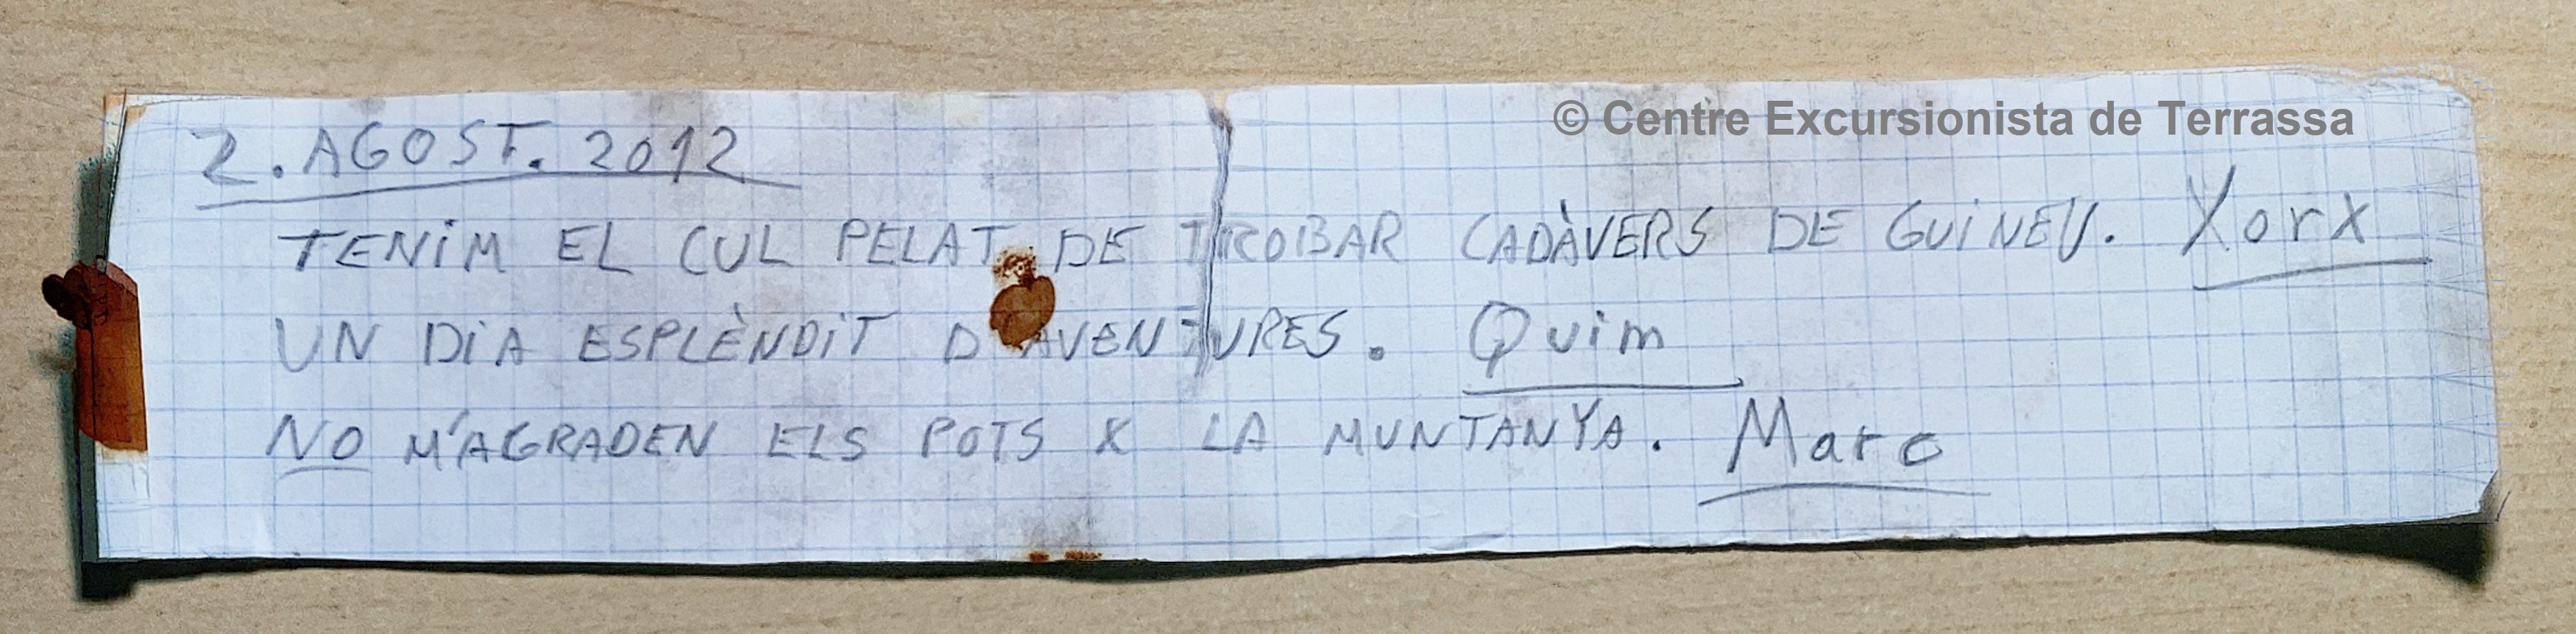 © Centre Excursionista de Terrassa
2. AGOST. 2012
TENiM EL CUL PELAT DE TROBAR CADÀVERS DE GUiNEU. Xorx
UN DiA ESPLÈNDiT D'AVENTURES. Quim
NO M'AGRADEN ELS POTS X LA MUNTANYA. Marc